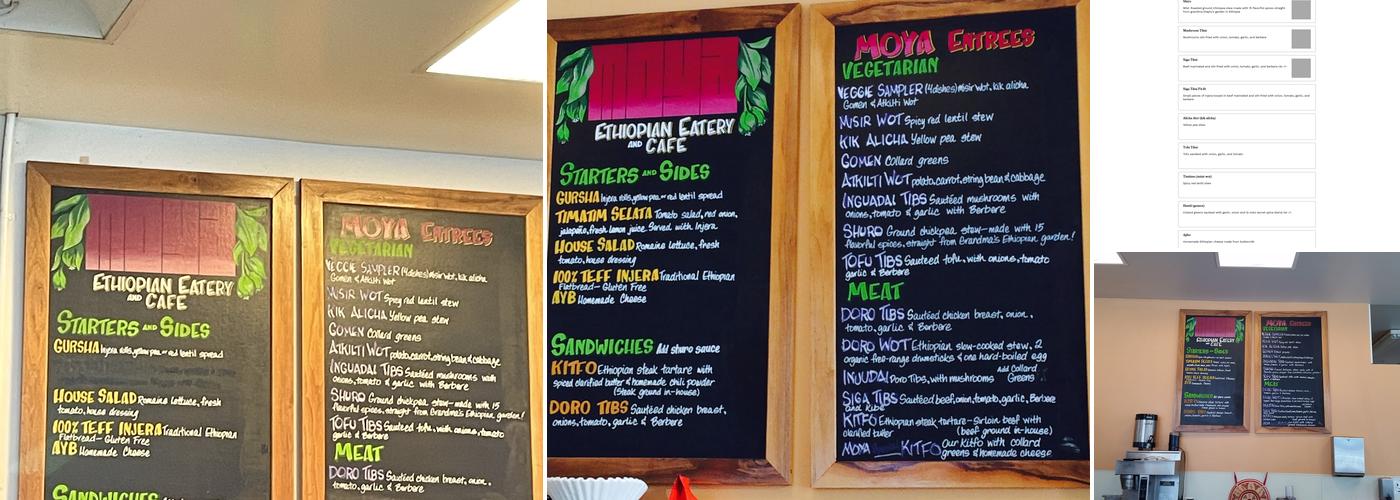 MOYA ENTREES
VEGETARIAN
ETHIOPIAN EATERY
AND CAFE
STARTERS AND SIDES
GURSHA injera rolls, yellow pea or red lentil spread
HOUSE SALAD Romaine lettuce, fresh
tomato, house dressing
100% TEFF INJERA Traditional Ethiopian
Flatbread - Gluten Free
AYB Homemade Cheese
SANDWICHES
VEGGIE SAMPLER (4 dishes) misir wot, kik alicha
Gomen & Atkilti Wot
MISIR WOT Spicy red lentil stew
KIK ALICHA Yellow pea stew
GOMEN Collard greens
ATKILTI WOT potato, carrot, string bean & cabbage
INGUADAI TIBS Sautéed mushrooms with
onions, tomato & garlic with Berbere
SHURO Ground chickpea stew-made with 15
flavorful spices, straight from Grandma's Ethiopian garden!
TOFU TIBS Sauteed tofu, with onions, tomato
garlic & Berbere
MEAT
DORO TIBS Sautéed chicken breast, onion,
tomato, garlic & Berbere
MOYA
ETHIOPIAN EATERY
AND CAFE
STARTERS AND SIDES
GURSHA injera rolls, yellow pea or red lentil spread
TIMATIM SELATA Tomato salad, red onion,
jalapeño, fresh lemon juice. Served with Injera
HOUSE SALAD Romaine lettuce, fresh
tomato, house dressing
100% TEFF INJERA Traditional Ethiopian
Flatbread - Gluten Free
AYB Homemade Cheese
SANDWICHES Add shuro sauce
KITFO Ethiopian steak tartare with
spiced clarified butter & homemade chili powder
(Steak ground in-house)
DORO TIBS Sautéed chicken breast,
onions, tomato, garlic & Berbere
MOYA ENTREES
VEGETARIAN
VEGGIE SAMPLER (4 dishes) misir wot, kik alicha
Gomen & Atkilti Wot
MISIR WOT Spicy red lentil stew
KIK ALICHA Yellow pea stew
GOMEN Collard greens
ATKILTI WOT potato, carrot, string bean & cabbage
INGUADAI TIBS Sautéed mushrooms with
onions, tomato & garlic with Berbere
SHURO Ground chickpea stew-made with 15
flavorful spices, straight from Grandma's Ethiopian garden!
TOFU TIBS Sauteed tofu, with onions, tomato
garlic & Berbere
MEAT
DORO TIBS Sautéed chicken breast, onion,
tomato, garlic & Berbere
DORO WOT Ethiopian slow-cooked stew, 2
organic free-range drumsticks & one hard-boiled egg
INJUDAI Doro Tibs, with mushrooms Add Collard
Greens
SIGA TIBS Sautéed beef, onion, tomato, garlic, Berbere
and kibe
KITFO Ethiopian steak-tartare-Sirloin beef with
clarified butter (beef ground in-house)
MOYA KITFO Our Kitfo with collard
greens & homemade cheese
Mushroom Tibs
Siga Tibs
Siga Tibs Firfir
Tofu Tibs
Yellow pea stew
Spicy red lentil stew
MOYA ENTREES
VEGETARIAN
STARTERS AND SIDES
MEAT
SANDWICHES